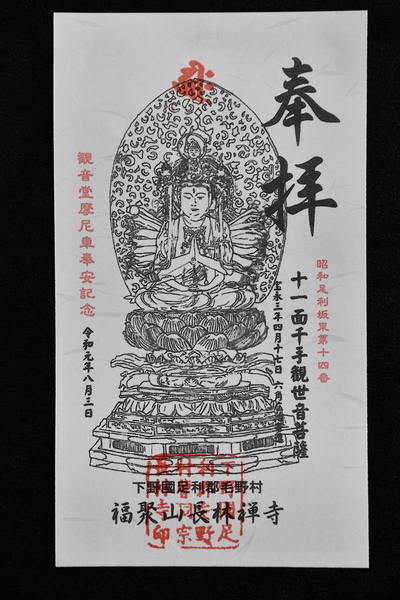 奉拝
昭和足利坂東第十四番
十一面千手観世音菩薩
宝永三年四月十七日
観音堂摩尼車奉安記念
令和元年八月三日
下野國足利郡毛野村
福聚山長林禅寺